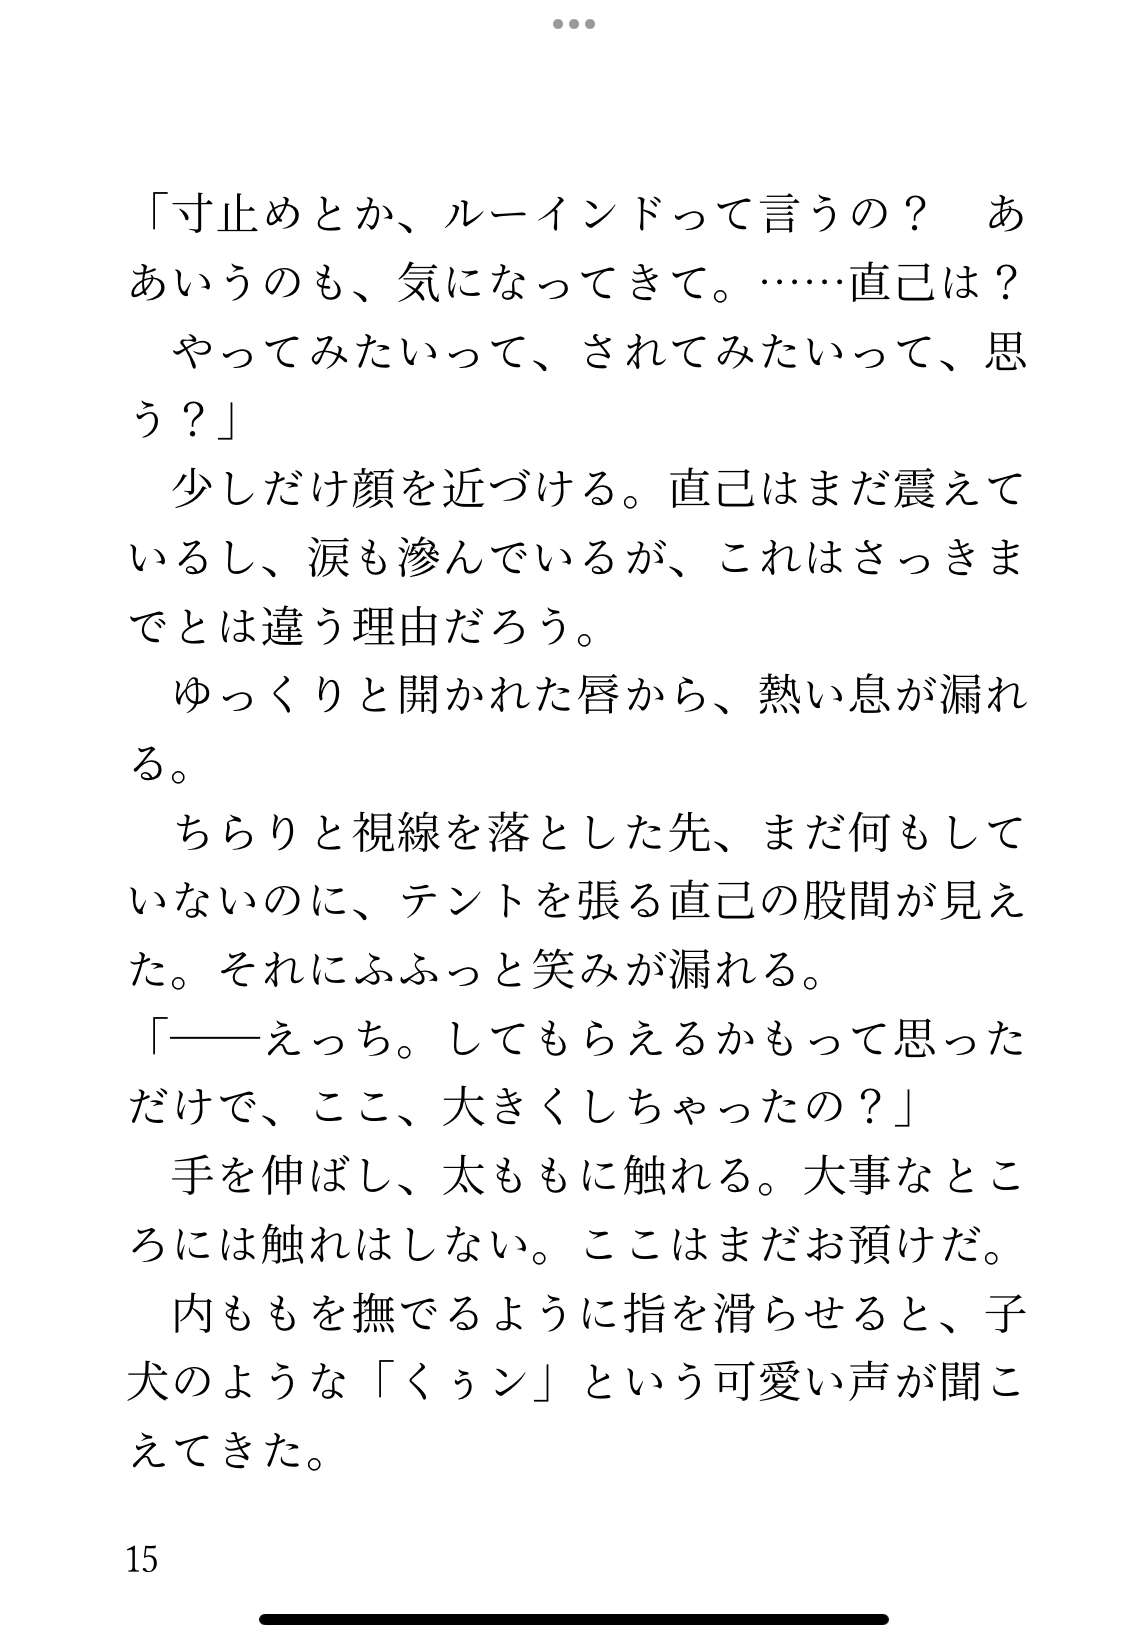 「寸止めとか、ルーインドって言うの？　あ
あいうのも、気になってきて。……直己は？
　やってみたいって、されてみたいって、思
う？」
　少しだけ顔を近づける。直己はまだ震えて
いるし、涙も滲んでいるが、これはさっきま
でとは違う理由だろう。
　ゆっくりと開かれた唇から、熱い息が漏れ
る。
　ちらりと視線を落とした先、まだ何もして
いないのに、テントを張る直己の股間が見え
た。それにふふっと笑みが漏れる。
「――えっち。してもらえるかもって思った
だけで、ここ、大きくしちゃったの？」
　手を伸ばし、太ももに触れる。大事なとこ
ろには触れはしない。ここはまだお預けだ。
　内ももを撫でるように指を滑らせると、子
犬のような「くぅン」という可愛い声が聞こ
えてきた。
15